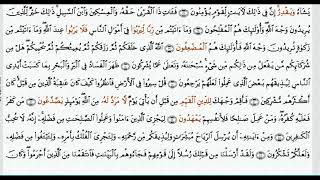 يَشَآءُ وَيَقْدِرُ إِنَّ فِي ذَٰلِكَ لَءَايَٰتٍ لِّقَوْمٍ يُؤْمِنُونَ ۝ فَـَٔاتِ ذَا ٱلْقُرْبَىٰ حَقَّهُۥ وَٱلْمِسْكِينَ وَٱبْنَ ٱلسَّبِيلِ ذَٰلِكَ خَيْرٌ لِّلَّذِينَ
يُرِيدُونَ وَجْهَ ٱللَّهِ وَأُو۟لَٰٓئِكَ هُمُ ٱلْمُفْلِحُونَ ۝ وَمَآ ءَاتَيْتُم مِّن رِّبًا لِّيَرْبُوَا۟ فِيٓ أَمْوَٰلِ ٱلنَّاسِ فَلَا يَرْبُوا۟ عِندَ ٱللَّهِ وَمَآ ءَاتَيْتُم مِّن زَكَوٰةٍ
تُرِيدُونَ وَجْهَ ٱللَّهِ فَأُو۟لَٰٓئِكَ هُمُ ٱلْمُضْعِفُونَ ۝ ٱللَّهُ ٱلَّذِي خَلَقَكُمْ ثُمَّ رَزَقَكُمْ ثُمَّ يُمِيتُكُمْ ثُمَّ يُحْيِيكُمْ هَلْ مِن
شُرَكَآئِكُم مَّن يَفْعَلُ مِن ذَٰلِكُم مِّن شَيْءٍ سُبْحَٰنَهُۥ وَتَعَٰلَىٰ عَمَّا يُشْرِكُونَ ۝ ظَهَرَ ٱلْفَسَادُ فِي ٱلْبَرِّ وَٱلْبَحْرِ بِمَا كَسَبَتْ أَيْدِي
ٱلنَّاسِ لِيُذِيقَهُم بَعْضَ ٱلَّذِي عَمِلُوا۟ لَعَلَّهُمْ يَرْجِعُونَ ۝ قُلْ سِيرُوا۟ فِي ٱلْأَرْضِ فَٱنظُرُوا۟ كَيْفَ كَانَ عَٰقِبَةُ ٱلَّذِينَ مِن قَبْلُ كَانَ
أَكْثَرُهُم مُّشْرِكِينَ ۝ فَأَقِمْ وَجْهَكَ لِلدِّينِ ٱلْقَيِّمِ مِن قَبْلِ أَن يَأْتِيَ يَوْمٌ لَّا مَرَدَّ لَهُۥ مِنَ ٱللَّهِ يَوْمَئِذٍ يَصَّدَّعُونَ ۝ مَن كَفَرَ
فَعَلَيْهِ كُفْرُهُۥ وَمَنْ عَمِلَ صَٰلِحًا فَلِأَنفُسِهِمْ يَمْهَدُونَ ۝ لِيَجْزِيَ ٱلَّذِينَ ءَامَنُوا۟ وَعَمِلُوا۟ ٱلصَّٰلِحَٰتِ مِن فَضْلِهِۦٓ إِنَّهُۥ لَا يُحِبُّ
ٱلْكَٰفِرِينَ ۝ وَمِنْ ءَايَٰتِهِۦٓ أَن يُرْسِلَ ٱلرِّيَاحَ مُبَشِّرَٰتٍ وَلِيُذِيقَكُم مِّن رَّحْمَتِهِۦ وَلِتَجْرِيَ ٱلْفُلْكُ بِأَمْرِهِۦ وَلِتَبْتَغُوا۟ مِن فَضْلِهِۦ
وَلَعَلَّكُمْ تَشْكُرُونَ ۝ وَلَقَدْ أَرْسَلْنَا مِن قَبْلِكَ رُسُلًا إِلَىٰ قَوْمِهِمْ فَجَآءُوهُم بِٱلْبَيِّنَٰتِ فَٱنتَقَمْنَا مِنَ ٱلَّذِينَ أَجْرَمُوا۟ وَكَانَ